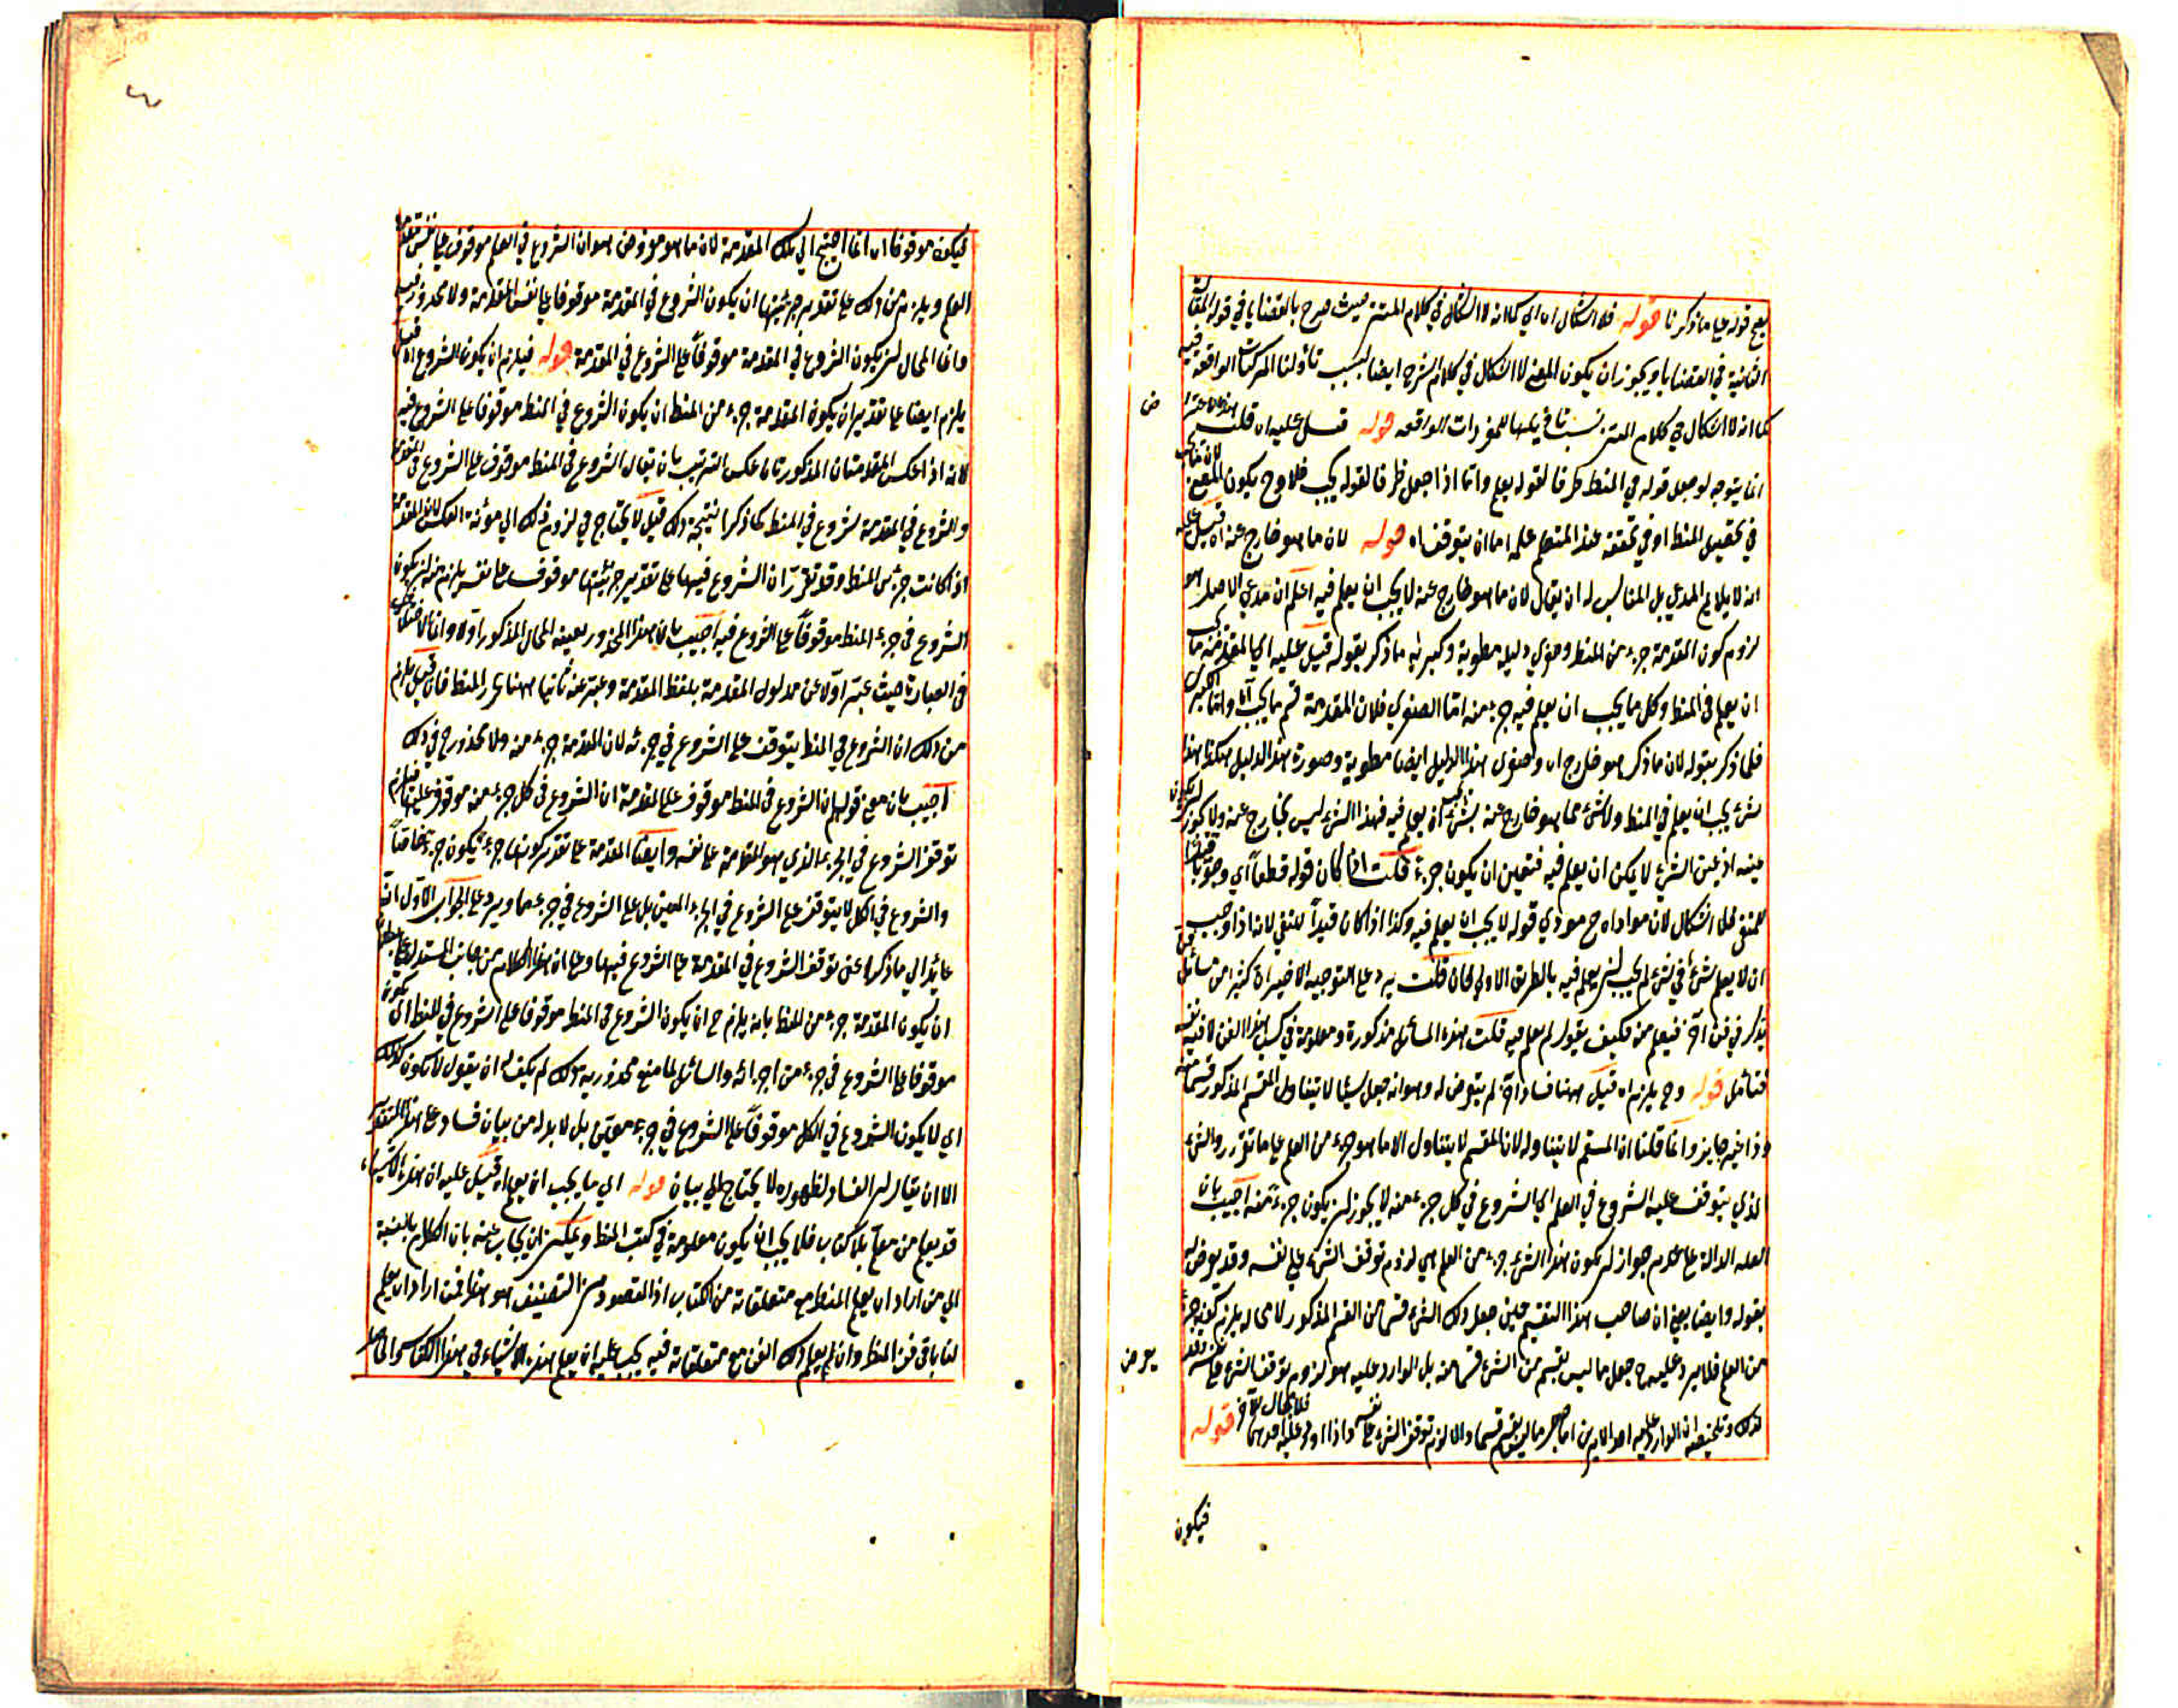 قوله على ما ذكرنا قوله فلا اشكال اه اي كما انه لا اشكال في كلام المتن حيث صرح بالقضايا في قوله المقالة
الثانية في القضايا ويجوز ان يكون المعنى لا اشكال في كلام الشرح ايضا بسبب تأولنا المركبات الواقعة فيه
كما انه لا اشكال في كلام المتن بسبب للمفردات الواقعة قوله قيل عليه ان قلت
انما يتوجه لو جعل قوله في المنطق ظرفا لقوله يعلم واما اذا جعل ظرفا لقوله يجب فلا وح يكون المعنى
في تحصيل المنطق او في تحققه عند المتعلم علمه اما ان يتوقف اه قوله لان ما هو خارج عنه اه قيل عليه
انه لا يلايم المدعى بل المناسب له ان يقال لان ما هو خارج عنه لا يجب ان يعلم فيه اعلم ان مدعى الاصل هو
لزوم كون المقدمة جزء من المنطق وصغرى دليله مطوية وكبريه ما ذكر بقوله قيل عليه اي المقدمة ما يجب
ان يعلم في المنطق وكل ما يجب ان يعلم فيه جزء منه اما الصغرى فلان المقدمة قسم ما يجب اه واما الكبرى
فلما ذكر بقوله لان ما ذكر هو خارج اه وصغرى هذا الدليل ايضا مطوية وصورة هذا الدليل هكذا هذا
شيء يجب ان يعلم في المنطق ولا شيء مما هو خارج عنه بشيء يجب ان يعلم فيه فهذا الشيء ليس بخارج عنه ولا يجوز ان يكون
عينه اذ عين الشيء لا يمكن ان يعلم فيه فتعين ان يكون جزءه قلت اذا كان قوله قطعا اي وجوبا قيدا
للمنفي فلا اشكال لان مؤداه ح مؤدي قوله لا يجب ان يعلم فيه وكذا اذا كان قيدا للنفي لانه اذا وجب
ان لا يعلم شيء في شيء لم يجب ان يعلم فيه بالطريق الاولى فان قلت يرد على التوجيه الاخير ان كثيرا من مسائل فن
يذكر في فن آخر فيعلم منه فكيف يقول لم يعلم فيه قلت هذه المسائل مذكورة ومعلومة في كتب هذا الفن لا فيه نفسه
فتأمل قوله وح يلزم اه قيل ههنا فساد آخر لم يتعرض له وهو انه جعل شيئا لا يتناول المقسم المذكور قسما منه
وذا غير جايز وانما قلنا ان المقسم لا يتناوله لان المقسم لا يتناول الا ما هو جزء من العلم على ما تقرر والشيء
الذي يتوقف عليه الشروع في العلم اي الشروع في كل جزء منه لا يجوز ان يكون جزء منه اجيب بان
العلة الدالة على عدم جواز ان يكون هذا الشيء جزء من العلم هي لزوم توقف الشيء على نفسه وقد تعرض له
بقوله وايضا يعني ان صاحب هذا التقسيم حين جعل ذلك الشيء قسما من القسم المذكور لا محالة يلزم كونه جزء
من العلم فلا يرد عليه جعل ما ليس بقسم من الشيء قسما منه بل الوارد عليه هو لزوم توقف الشيء على نفسه
يعرض
كذلك وتلخيصه ان الوارد عليه احد الامرين اما جعل ما ليس بقسم قسما والا لزم توقف الشيء على نفسه واذا اورد عليه احدهما فلا مجال للآخر قوله
فيكون
فيكون موقوفا اه انما احتيج الى تلك المقدمة لان ما هو مفروض هو ان الشروع في العلم موقوف على نفس مقدمة
العلم ويلزم من ذلك على تقدير جزئيتها ان يكون الشروع في المقدمة موقوفا على نفس المقدمة ولا محذور فيه
وانما المحال ان يكون الشروع في المقدمة موقوفا على الشروع في المقدمة قوله فيلزم ان يكون الشروع اه قيل
يلزم ايضا على تقدير ان يكون المقدمة جزء من المنطق ان يكون الشروع في المنطق موقوفا على الشروع فيه
لانه اذا عكس المقدمتان المذكورتان عكس الترتيب بان يقال الشروع في المنطق موقوف على الشروع في المقدمة
والشروع في المقدمة شروع في المنطق كما ذكر انتج ذلك قيل لا يحتاج في لزوم ذلك الى مؤنة العكس لان المقدمة
اذا كانت جزء من المنطق وقد تقرر ان الشروع فيها على تقدير جزئيتها موقوف على نفسه يلزم منه ان يكون
الشروع في جزء المنطق موقوفا على الشروع فيه اجيب بان هذا المحذور بعينه المحال المذكور اولا وانما الاختلاف
في العبارة حيث عبر اولا عن مدلول المقدمة بلفظ المقدمة وعبر عنه ثانيا ههنا بجزء المنطق فان قيل يلزم
من ذلك ان الشروع في المنطق يتوقف على الشروع في جزئه لان المقدمة جزء منه ولا محذور ح في ذلك
اجيب بان معنى قولهم ان الشروع في المنطق موقوف على المقدمة ان الشروع في كل جزء منه موقوف عليها فيلزم
توقف الشروع في الجزء الذي هو المقدمة على نفسه وايضا المقدمة على تقدير كونها جزء يكون جزء خاصا
والشروع في الكل لا يتوقف على الشروع في الجزء المعين بل على الشروع في جزء ما ويرد على الجواب الاول انه
عائد الى ما ذكر اعني توقف الشروع في المقدمة على الشروع فيها وعلى ان هذا الكلام من جانب المستدل على بطلان
ان يكون المقدمة جزء من المنطق بانه يلزم ح ان يكون الشروع في المنطق موقوفا على الشروع في المنطق اي يكون
موقوفا على الشروع في جزء من اجزائه والسائل لما منع محذورية ذلك لم يكف ان يقول لا يكون كذلك
اي لا يكون الشروع في الكل موقوفا على الشروع في جزء معين بل لا بد له من بيان فساد على هذا التقدير
الا ان يقال ان الفساد لظهوره لا يحتاج الى بيان قوله اي ما يجب ان يعلم اه قيل عليه ان هذه الاشياء
قد يعلم من معلم بلا كتاب فلا يجب ان يكون معلومة في كتب المنطق ويمكن ان يجاب عنه بان الكلام بالنسبة
الى من اراد ان يعلم المنطق مع متعلقاته من الكتاب اذ المقصود من التصنيف هو هذا فمن اراد ان يعلم
لنا باقي فن المنطق وان لم يعلم ذلك الفن مع متعلقاته فيه يجب عليه ان يعلم هذه الاشياء في هذا الكتاب